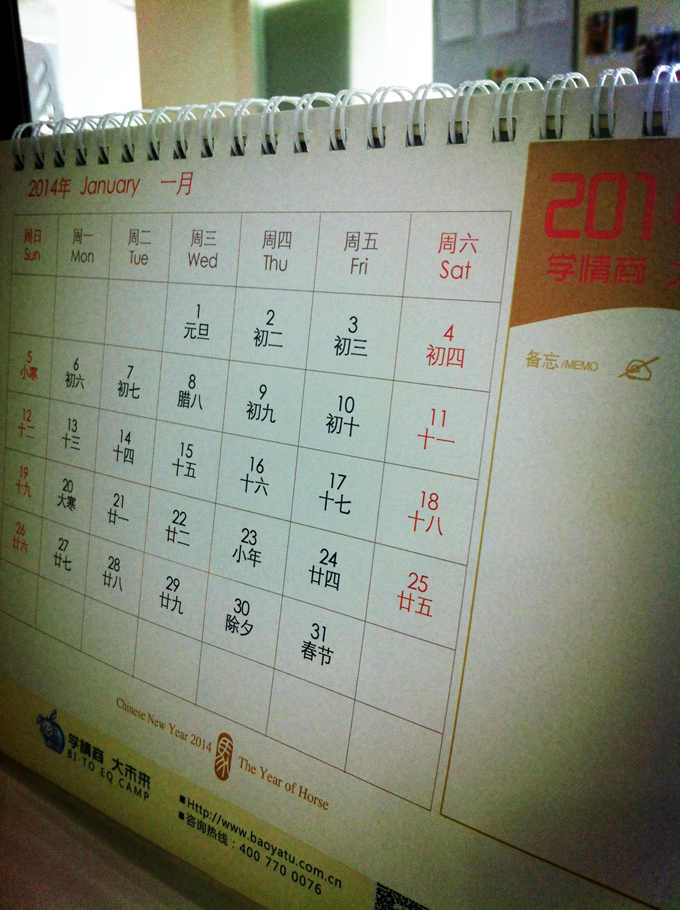 2014年 January 一月
周日 周一 周二 周三 周四 周五 周六
Sun Mon Tue Wed Thu Fri Sat
1 2 3 4
元旦 初二 初三 初四
5 6 7 8 9 10 11
小寒 初六 初七 腊八 初九 初十 十一
12 13 14 15 16 17 18
十二 十三 十四 十五 十六 十七 十八
19 20 21 22 23 24 25
十九 大寒 廿一 廿二 小年 廿四 廿五
26 27 28 29 30 31
廿六 廿七 廿八 廿九 除夕 春节
Chinese New Year 2014 馬 The Year of Horse
学情商 大未来
BI TO EQ CAMP
■Http://www.baoyatu.com.cn
■咨询热线：400 770 0076
201
学情商 大
备忘/MEMO